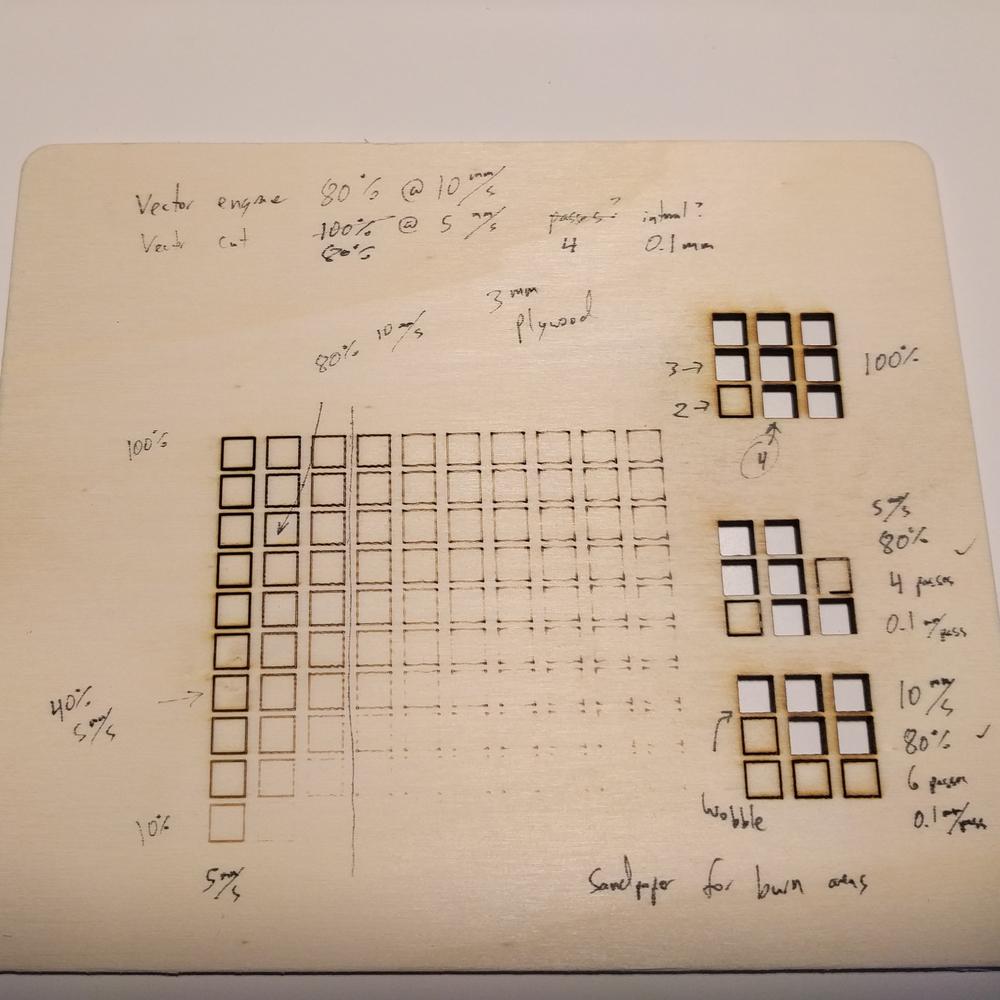 Vector engrave 80% @ 10 mm/s
Vector cut 100% @ 5 mm/s passes? interval?
80% 4 0.1 mm
3 mm
plywood
80% 10 mm/s
100%
3→
2→
100%
4
5 mm/s
80% ✓
4 passes
0.1 mm/pass
40%
5 mm/s
10 mm/s
80% ✓
6 passes
0.1 mm/pass
wobble
10%
5 mm/s
Sandpaper for burn areas